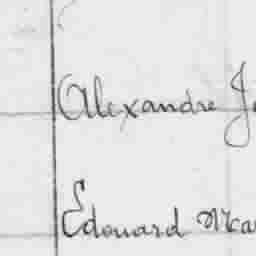 Alexandre
Edouard